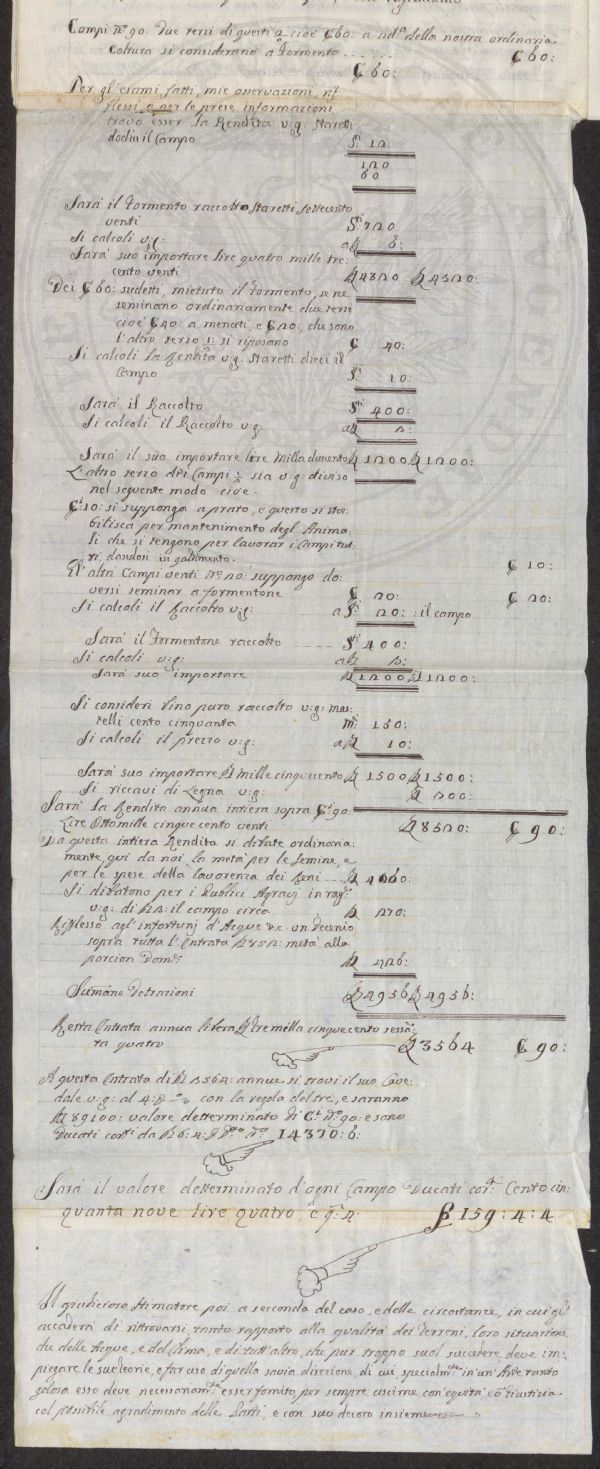 Campi n.º 90: Due terzi di questi 2/3 cioè C 60: a nd.º della nostra ordinaria
Coltura si considerano a Formento ---- C 60:
C 60:
Per gl'esami fatti, mie osservazioni, rif-
flessi, e per le prese informazioni
trovo esser la Rendita v:g: Staretti
dodici il Campo S.ti 12
120
60
Sarà il Formento raccolto Staretti settecento
venti S.ti 720
Si calcoli v:g: a L 6:
Sarà suo importare lire quatro mille tre-
cento venti L 4320 L 4320:
Dei C 60: sudetti, mietuto il Formento, se ne
seminano ordinariamente due terzi
cioè C 40: a menuti, e C 20:, che sono
l'altro terzo si riposano C 40:
Si calcoli la Rendita v:g: Staretti dieci il
Campo S.ti 10:
Sarà il Raccolto S.ti 400:
Si calcoli il Raccolto v:g: a L 3:
Sarà il suo importare lire Milla duecento L 1200 L 1200:
L'altro terzo dei Campi 1/3 sia v:g: diviso
nel seguente modo cioè.
C.i 10: si suppongo a prato, e questo si sta-
bilisca per mantenimento degl'Anima-
li che si tengono per lavorar i Campi tut-
ti, dandosi in godimento. C 10:
Gl'altri Campi venti n.º 20: suppongo do-
versi seminar a formentone C 20: C 20:
Si calcoli il Raccolto v:g: a S.ti 20: il campo
Sarà il Formentone raccolto ---- S.ti 400:
Si calcoli v:g: a L 3:
Sarà suo importare L 1200 L 1200:
Si consideri Vino puro raccolto v:g: mas-
telli cento cinquanta m.i 150:
Si calcoli il prezzo v:g: a L 10:
Sarà suo importare L mille cinquecento L 1500 L 1500:
Si riccavi di Legna v:g: L 300:
Sarà la Rendita annua intiera sopra C.i 90:
Lire Ottomille cinquecento venti L 8520: C 90:
Da questa intiera Rendita si dibate ordinaria-
mente, qui da noi, la metà per le semine, e
per le spese della lavorenza dei Beni --- L 4260:
Si dibatono per i Publici Agravj in rag.e
v:g: di L 3: il campo circa L 270:
Riflesso agl'infortunj d'Acque &c: un Decenio
sopra tutta l'Entrata L 852: metà alla
porcion Dom.le L 426:
Sumano Detrazioni L 4956 L 4956:
Resta Entrata annua libera L Tremilla cinquecento sessã-
ta quatro L 3564 C 90:
A questa Entrata di L 3564: annue si trovi il suo Cave-
dale v:g: al 4 p % con la regola del tre, e saranno
L 89100: valore determinato di C.i N.º 90: e sono
Ducati corr.ti da L 6:4: p D.to N.º 14370:6:
Sarà il valore determinato d'ogni Campo Ducati cor.ti Cento cin-
quanta nove lire quatro, e q.ri 4: D 159:4:4
Il giudicioso Stimatore poi a seconda del caso, e delle circostanze, in cui gl'
accaderà di rittrovarsi tanto rapporto alla qualità dei terreni, loro situazione
che delle Acque, e del Clima, e di tutt'altro, che pur troppo suol succedere, deve im-
piegare le sue teorie, e far uso di quella savia direzione, di cui specialm.te in un'Arte tanto
gelosa esso deve necessariam.te esser fornito, per sempre uscirne con equità, cõ Giustizia
col possibile agradimento delle Parti, e con suo decoro insieme